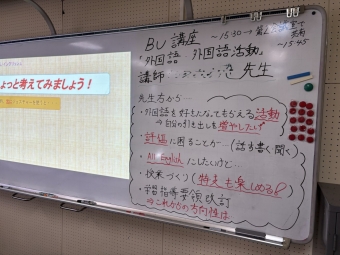 ょっと考えてみましょう！
BU 講座 ～15:30→
～15:45
「外国語・外国語活動」
講師 先生
先生方から…
・外国語を好きになってもらえる活動
⇒自分の引き出しを増やしたい
・評価に困ることが…(話す・書く・聞く)
・All Englishにしたいけど…
・授業づくり(特支も楽しめる)
・学習指導要領改訂
⇒これからの方向性は